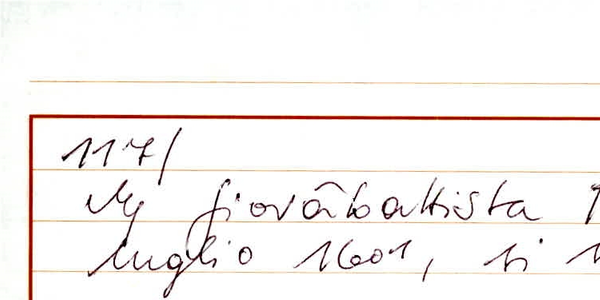 117/
Giovãbattista
luglio 1601, si